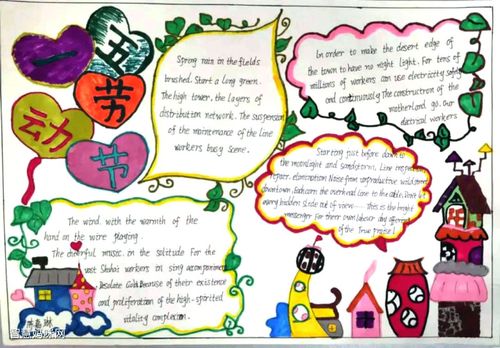 一
五
劳
动
节
Spring rain in the fields
brushed. Start a long green.
The high tower, the layers of
distribution network. The suspension
of the maintenance of the line
workers busy scene.
In order to make the desert edge of
the town to have no night light. For tens of
millions of workers can use electricity safely
and continuously The construction of the
motherland go. Our
electrical workers
Starting just before dawn to
the moonlight and sandstorm. Line inspection
repair. elimination Noise from unproductive wild
downtown. Each corn the overhead line to the cable.
every hidden slide out of view.... This is the bright
messenger For their own labour day offering
of the True praise!
The wind with the warmth of the
hand on the wire playing.
The cheerful music in the solitude For the
vast workers in sing accompaniment
Desolate Gobi Because of their existence
and proliferation of the high-spirited
vitality complexion.
智慧妈咪网